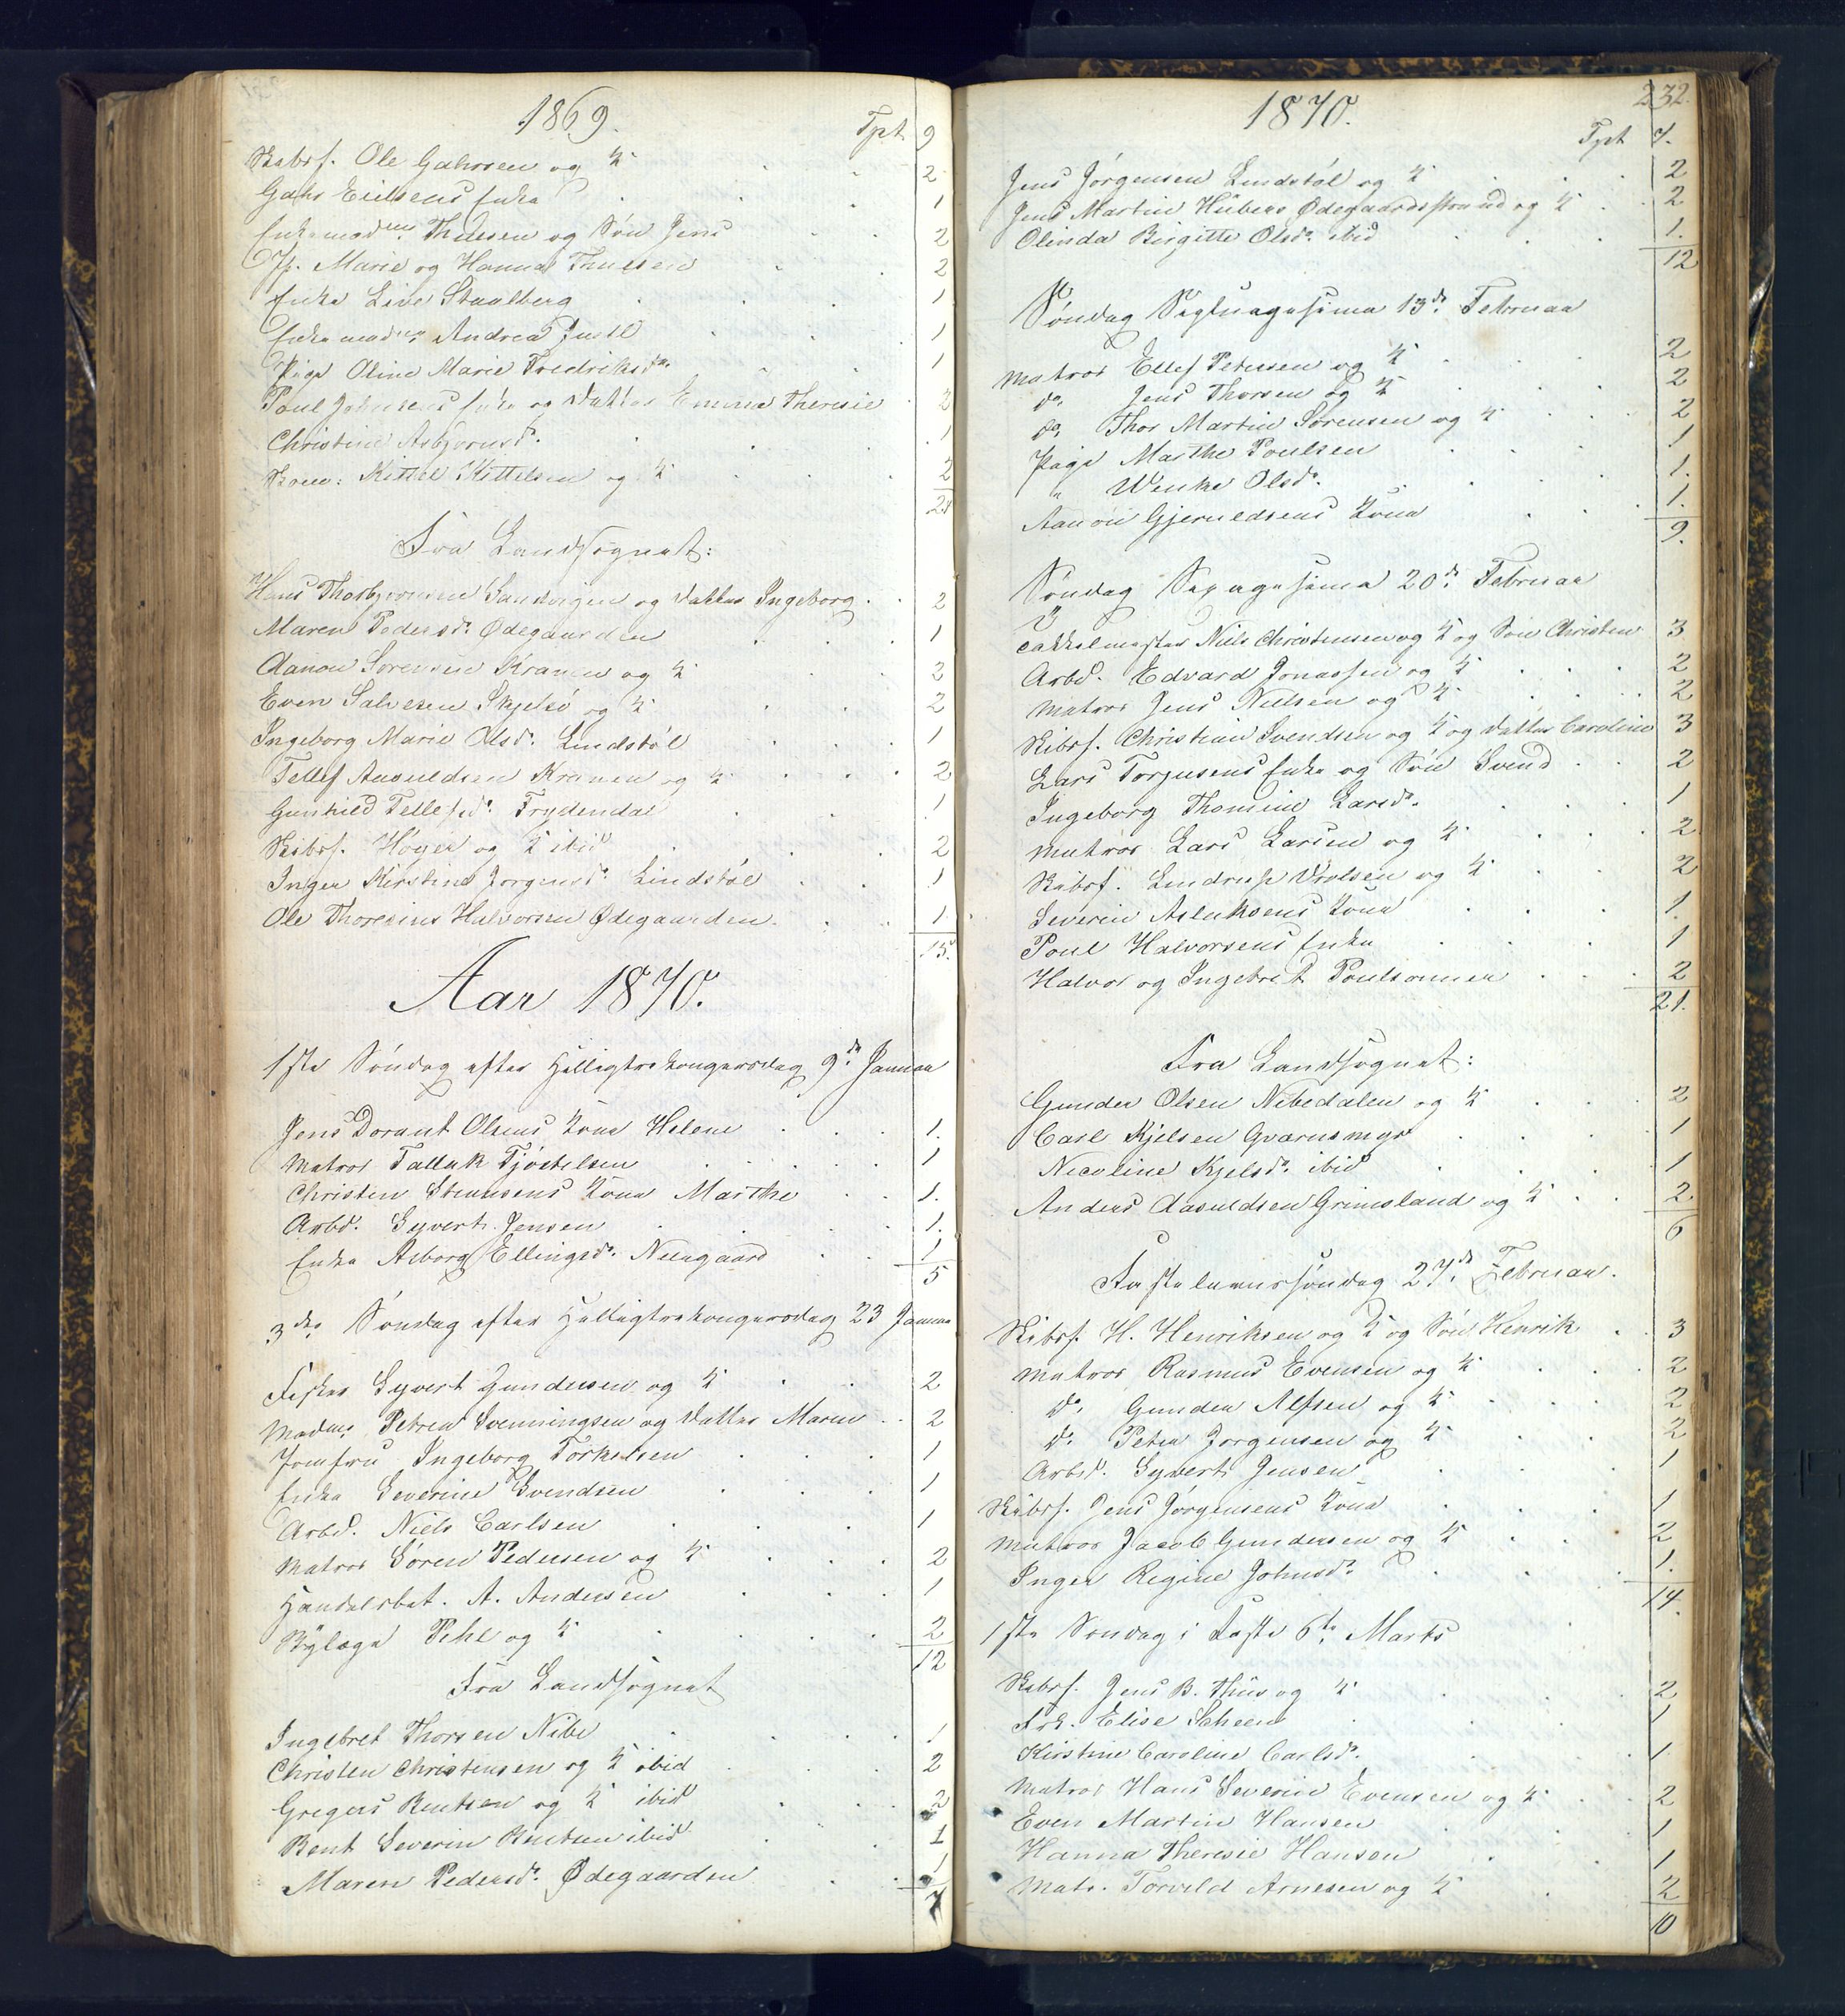 1869.
Tpt 9
Skibsf. Ole Gahrsen og K. 2
Gahr Eielsens Enke 1
Enkemadme Thuesen og Søn Jens 2
Jfr. Marie og Hanna Thuesen 2
Enke Live Staalberg 1
Enkemadme Andrea Juell 1
Pige Oline Marie Fredriksdr. 1
Poul Johnsens Enke og Datter Emma Theresie 2
Christine Asbjørnsdr. 1
Skom: Kittel Kittelsen og K. 2
24
Fra Landsognet:
Hans Thorbjørnsen Sandvigen og Datter Ingeborg 2
Maren Pedersdr. Ødegaarden 1
Aanon Sørensen Kranen og K. 2
Even Salvesen Skjelsö og K. 2
Ingeborg Marie Olsdr. Lindstøl 1
Tellef Aanueldsen Kranen og K. 2
Gunhild Tellefsdr. Frydendal 1
Skibsf. Høyer og K ibid 2
Inger Kirstine Jorgensdr. Lindstøl 1
Ole Thoresius Halvorsen Ødegaarden 1
15.
Aar 1870.
1ste Søndag efter Helligtrekongersdag 9de Januar
Jens Dorant Olsens Kone Helene 1.
Matros Tallak Tjøstelsen 1
Christen Steensens Kone Marthe 1.
Arbd. Syvert Jensen 1.
Enke Asborg Ellingsdr. Neegaard 1
5
3die Søndag efter Helligtrekongersdag 23 Januar
Fisker Syvert Gundersen og K 2
Madme Petrea Svenningsen og Datter Maren 2
Jomfru Ingeborg Torkelsen 1
Enke Severine Svendsen 1
Arbd. Niels Carlsen 1
Matros Søren Pedersen og K 2
Handelsbet. A. Andersen 1
Bylæge Pihl og K 2
12
Fra Landsognet
Ingebret Thorsen Nibe 1
Christen Christensen og K ibid 2
Gregers Bentsen og K ibid 2
Bent Severin Bentsen ibid 1
Maren Pedersdr. Ødegaarden 1
7
1870.
232.
Tpt 7.
Jens Jørgensen Lindstøl og K 2
Jens Martin Hübers Ødegaardsstrand og K 2
Olinda Birgitte Olsdr. ibid 1.
12
Søndag Septuagesima 13de Februar
Matros Ellef Petersen og K. 2
do. Jens Thorsen og K 2
do. Thor Martin Sørensen og K 2
Pige Marthe Poulsen 1
" Wenke Olsdr. 1.
Aanon Gjeruldsens Kone 1.
9.
Søndag Sexagesima 20de Februar
Takkelmester Niels Christensen og K og Søn Christen 3
Arbd. Edvard Jonassen og K 2
Matros Jens Nielsen og K. 2
Skibsf. Christian Svendsen og K og Datter Caroline 3
Lars Torjusens Enke og Søn Svend 2
Ingeborg Thomine Larsdr. 1
Matros Lars Larsen og K 2
Skibsf. Lindrup Vrolsen og K 2
Severin Aslaksens Kone 1.
Poul Halvorsens Enke 1
Halvor og Ingebret Poulsønner 2
21.
Fra Landsognet:
Gunder Olsen Nibedalen og K 2
Carl Kjelsen Qvarnsmyr 1
Nicoline Kjelsdr. ibid 1
Anders Aasuldsen Grimsland og K 2
6
Fastelavnssøndag 27de Februar.
Skibsf. H. Henriksen og K og Søn Henrik 3
Matros Rasmus Evensen og K 2
do. Gunder Alfsen og K 2
do. Peter Jørgensen og K 2
Arbd. Syvert Jensen 1
Skibsf. Jens Jørgensens Kone 1
Matros Jacob Gundersen og K 2
Inger Regine Johnsdr. 1.
14.
1ste Søndag i Faste 6te Marts
Skibsf. Jens B. Thüs og K 2
Frk. Elise Scheen 1
Kirstine Caroline Carlsdr. 1.
Matros Hans Severin Evensen og K 2
Even Martin Hansen 1
Hanna Theresie Hansen 1
Matr. Torvild Arnesen og K 2
10